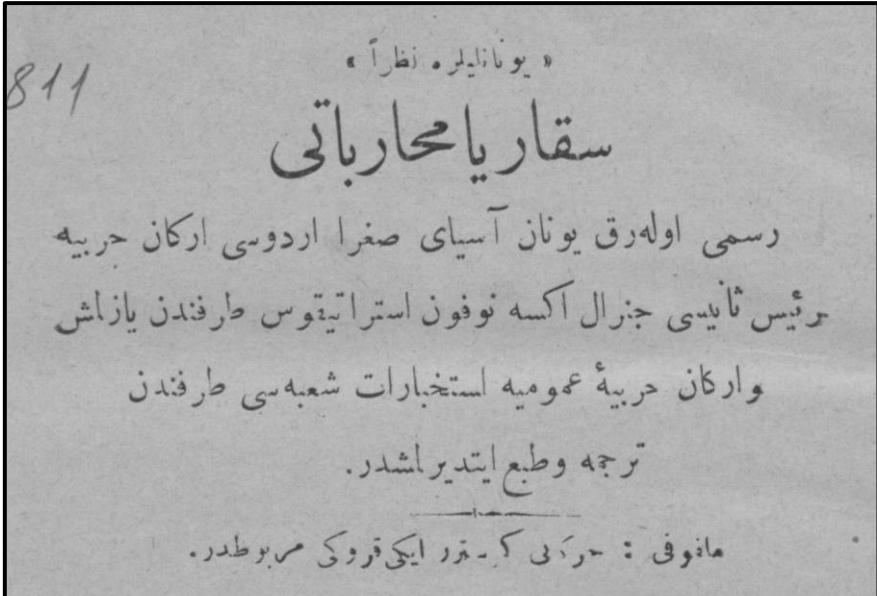 « یونانلیلره نظراً »
811
سقاریا محارباتی
رسمی اولەرق یونان آسیای صغرا اردوسی ارکان حربیه
رئیس ثانیسی جنرال اکسه نوفون استراتیقوس طرفندن یازلمش
و ارکان حربیهٔ عمومیه استخبارات شعبه‌سی طرفندن
ترجمه وطبع ایتدیرلمشدر.
ملفوفی : حرکاتی کوسترر ایکی قروکی مربوطدر.